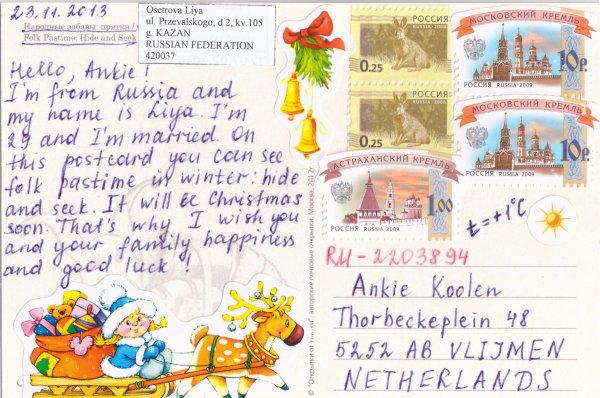 23.11.2013
Народные забавы: прятки /
Folk Pastime: Hide and Seek
Osetrova Liya
ul. Przevalskogo, d.2, kv.105
g. KAZAN
RUSSIAN FEDERATION
420037
Hello, Ankie!
I'm from Russia and
my name is Liya. I'm
29 and I'm married. On
this postcard you can see
folk pastime in winter: hide
and seek. It will be Christmas
soon. That's why I wish you
and your family happiness
and good luck!
РОССИЯ RUSSIA 2008
0.25
РОССИЯ RUSSIA 2008
0.25
МОСКОВСКИЙ КРЕМЛЬ
10р.
РОССИЯ RUSSIA 2009
МОСКОВСКИЙ КРЕМЛЬ
10р.
РОССИЯ RUSSIA 2009
АСТРАХАНСКИЙ КРЕМЛЬ
1.00
РОССИЯ RUSSIA 2009
t=+1°C
RU-2203894
Ankie Koolen
Thorbeckeplein 48
5252 AB VLIJMEN
NETHERLANDS
авторские почтовые открытки. Москва, 2012г.